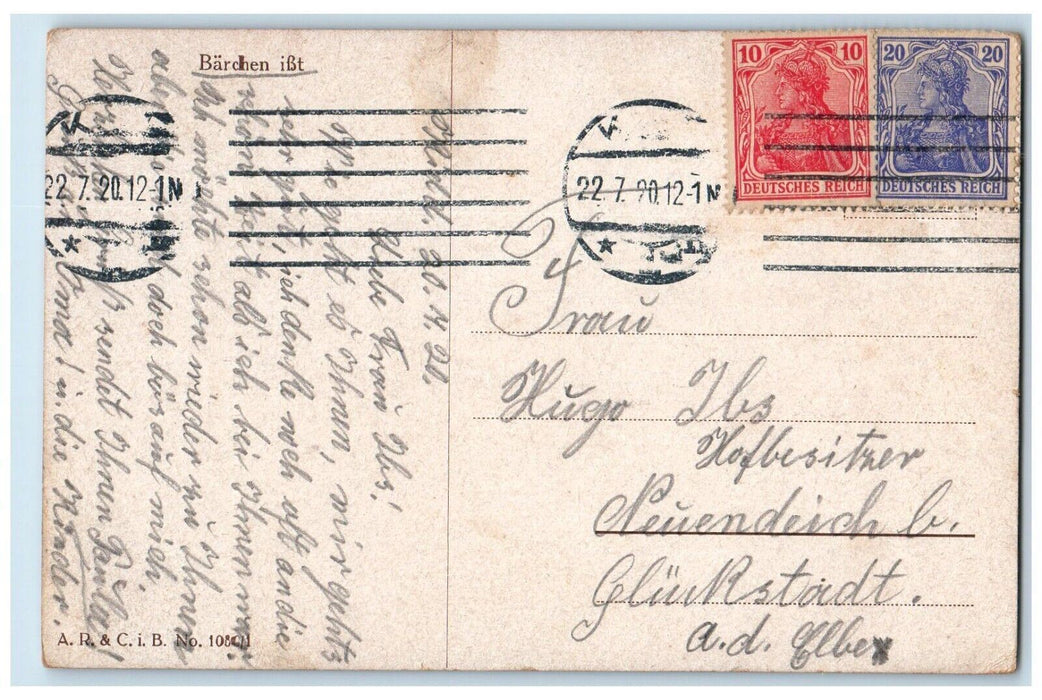 Bärchen ißt
10 10
DEUTSCHES REICH
20 20
DEUTSCHES REICH
22.7.20.12-1N
22.7.20.12-1N
20. 7. 20.
Liebe Frau Ibs,
Wie geht es Ihnen, mir geht's
sehr gut, ich denke noch oft an die
schöne Zeit als ich bei Ihnen war.
Ich möchte schon wieder zu Ihnen
aber sind doch bös auf mich.
Gruß sendet Ihnen Paula!
Gruß Oma! u. die Kinder.
Frau
Hugo Ibs
Hofbesitzer
Neuendeich b.
Glückstadt.
a. d. Elbe
A. R. & C. i. B. No. 1081/1